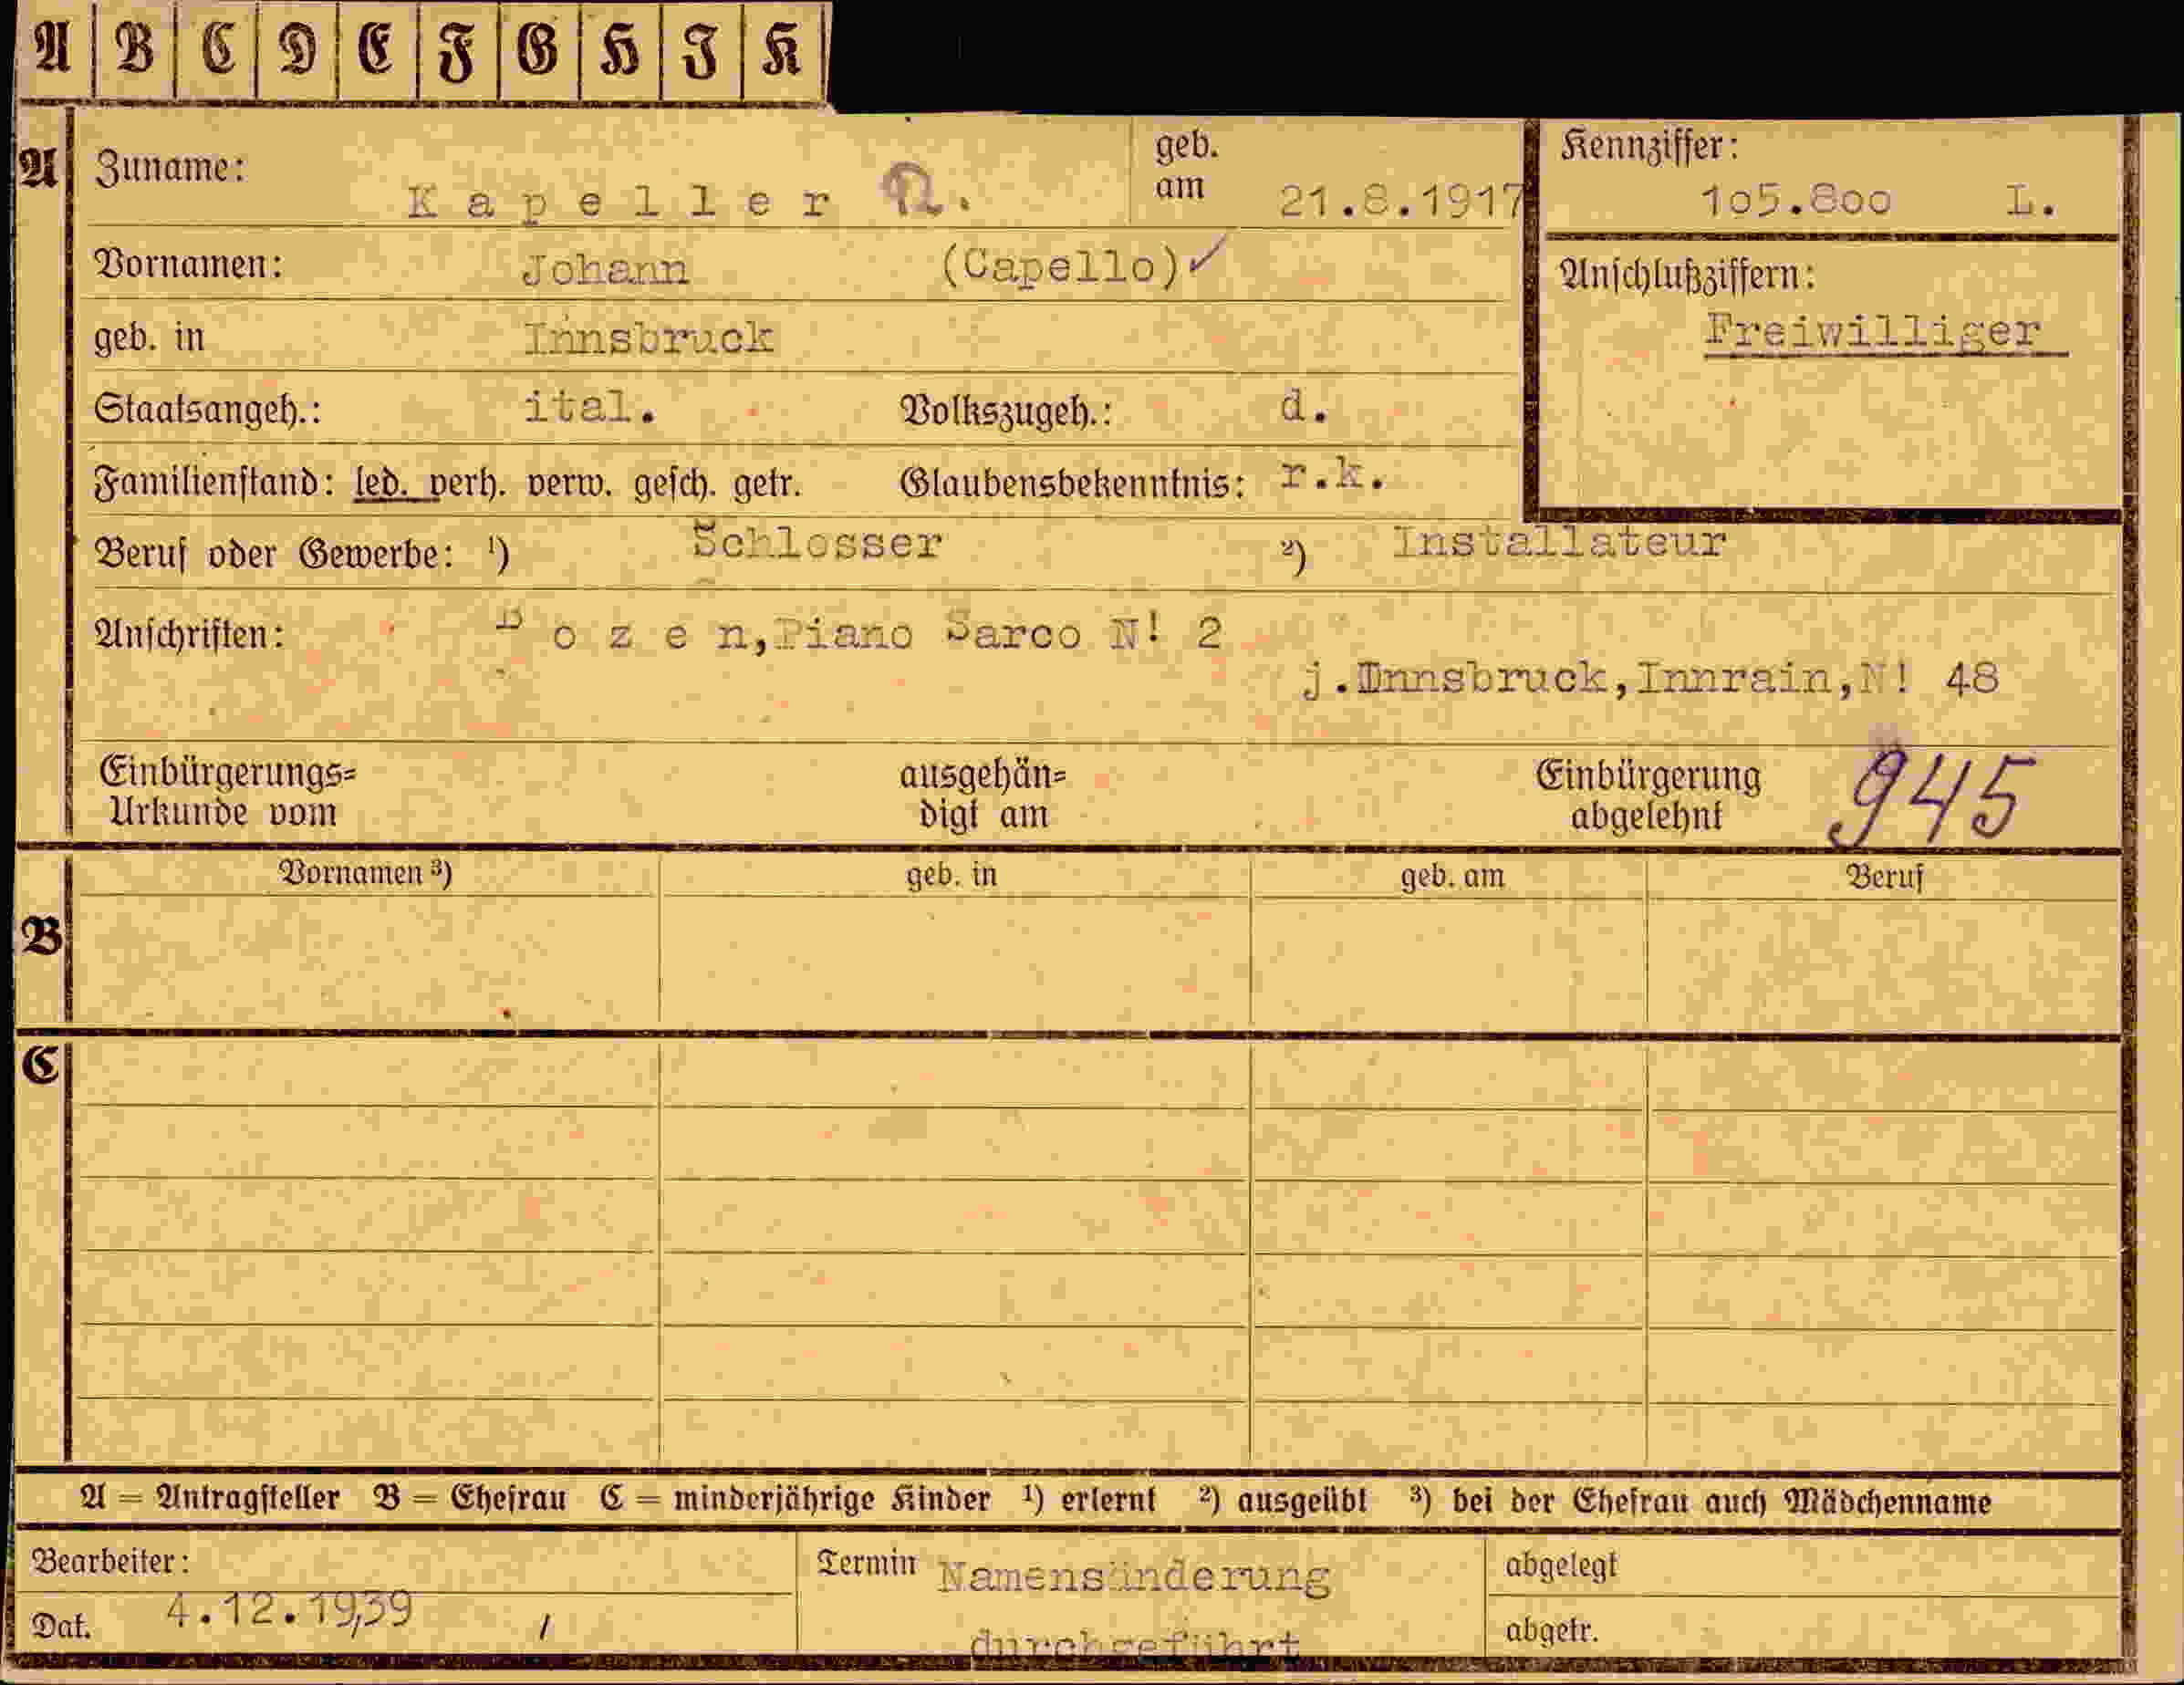 A B C D E F G H I K
A Zuname: Kapeller geb. am 21.8.1917 Kennziffer: 105.800 L.
Vornamen: Johann (Capello) ✓ Anschlußziffern:
geb. in Innsbruck Freiwilliger
Staatsangeh.: ital. Volkszugeh.: d.
Familienstand: led. verh. verw. gesch. getr. Glaubensbekenntnis: r.k.
Beruf oder Gewerbe: ¹) Schlosser ²) Installateur
Anschriften: Bozen, Piano Sarco N! 2
j. Innsbruck, Innrain, N! 48
Einbürgerungs= ausgehän= Einbürgerung 945
Urkunde vom digt am abgelehnt
Vornamen ³) geb. in geb. am Beruf
B
C
A = Antragsteller B = Ehefrau C = minderjährige Kinder ¹) erlernt ²) ausgeübt ³) bei der Ehefrau auch Mädchenname
Bearbeiter: Termin Namensänderung abgelegt
Dat. 4.12.1939 / durchgeführt abgetr.